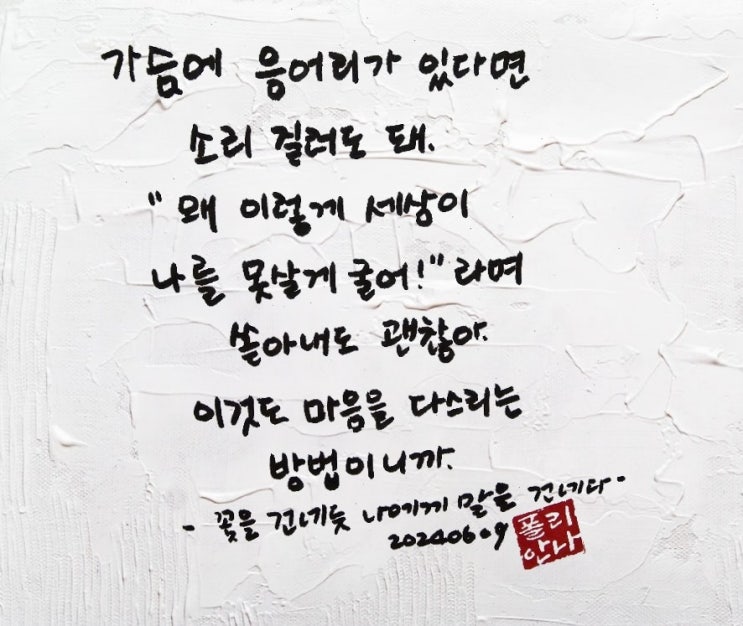 가슴에 응어리가 있다면
소리 질러도 돼.
"왜 이렇게 세상이
나를 못살게 굴어!"라며
쏟아내도 괜찮아.
이것도 마음을 다스리는
방법이니까.
- 꽃을 건네듯 나에게 말을 건네다 -
20240609
폴리
안나